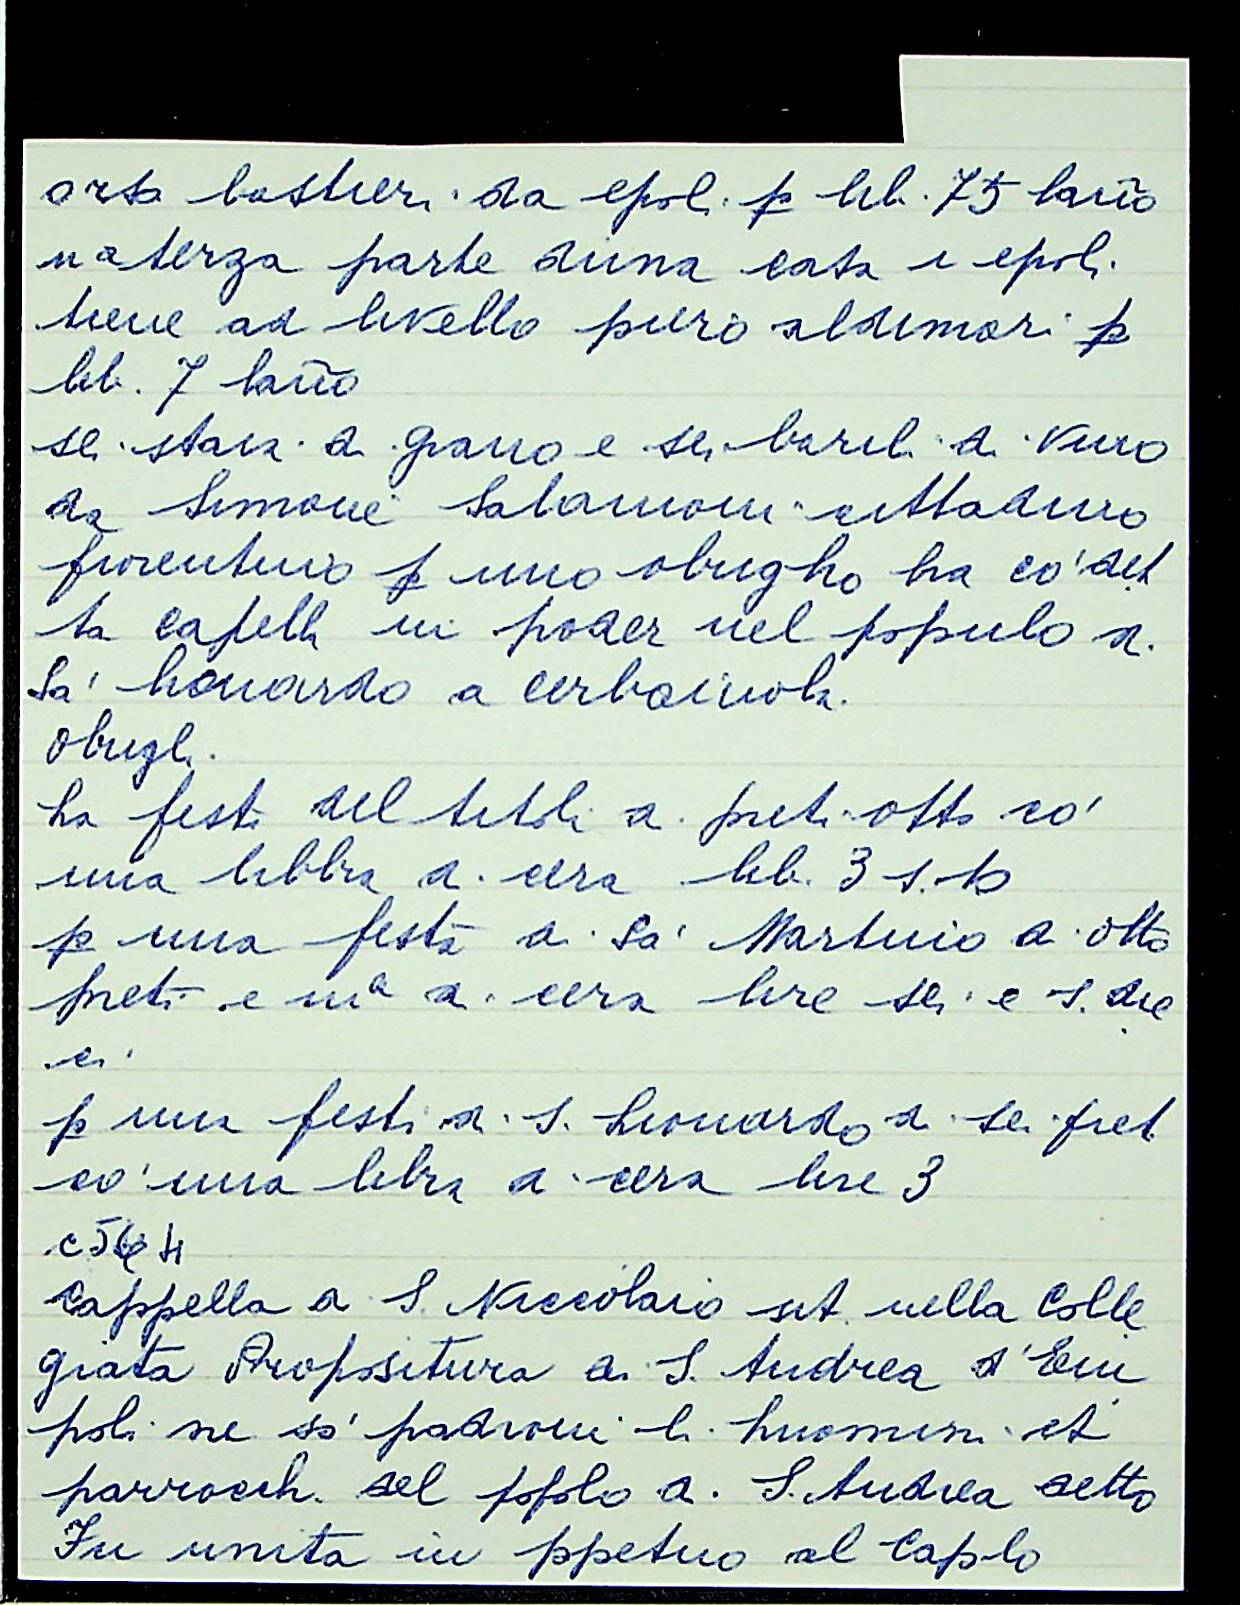 orso bastieri da epoli p lib. 75 lāno
na terza parte duna casa i epoli
tiene ad livello piero aldimari p
lib. 7 lāno
sei staia di grano e sei barili di vino
da Simone Salamoni cittadino
fiorentino p uno obrigho ha co' det
ta capella in poder nel populo di
Sa' lionardo a cerbaiuola.
obrigli.
ha festi del titoli di preti otto co'
una libbra di cera lib. 3 s.
p una festa di Sa' Martino di otto
preti e mª di cera lire sei e s. die
ci
p una festi di S. Lionardo di sei pret
co' una libra di cera lire 3
Cappella di S. Niccolaio sit. nella Colle
giata Propositura di S. Andrea d'Em
poli ne so' padroni li huomini et
parrocch. del popolo di S. Andrea detto
Fu unita in ppetuo al Caplo